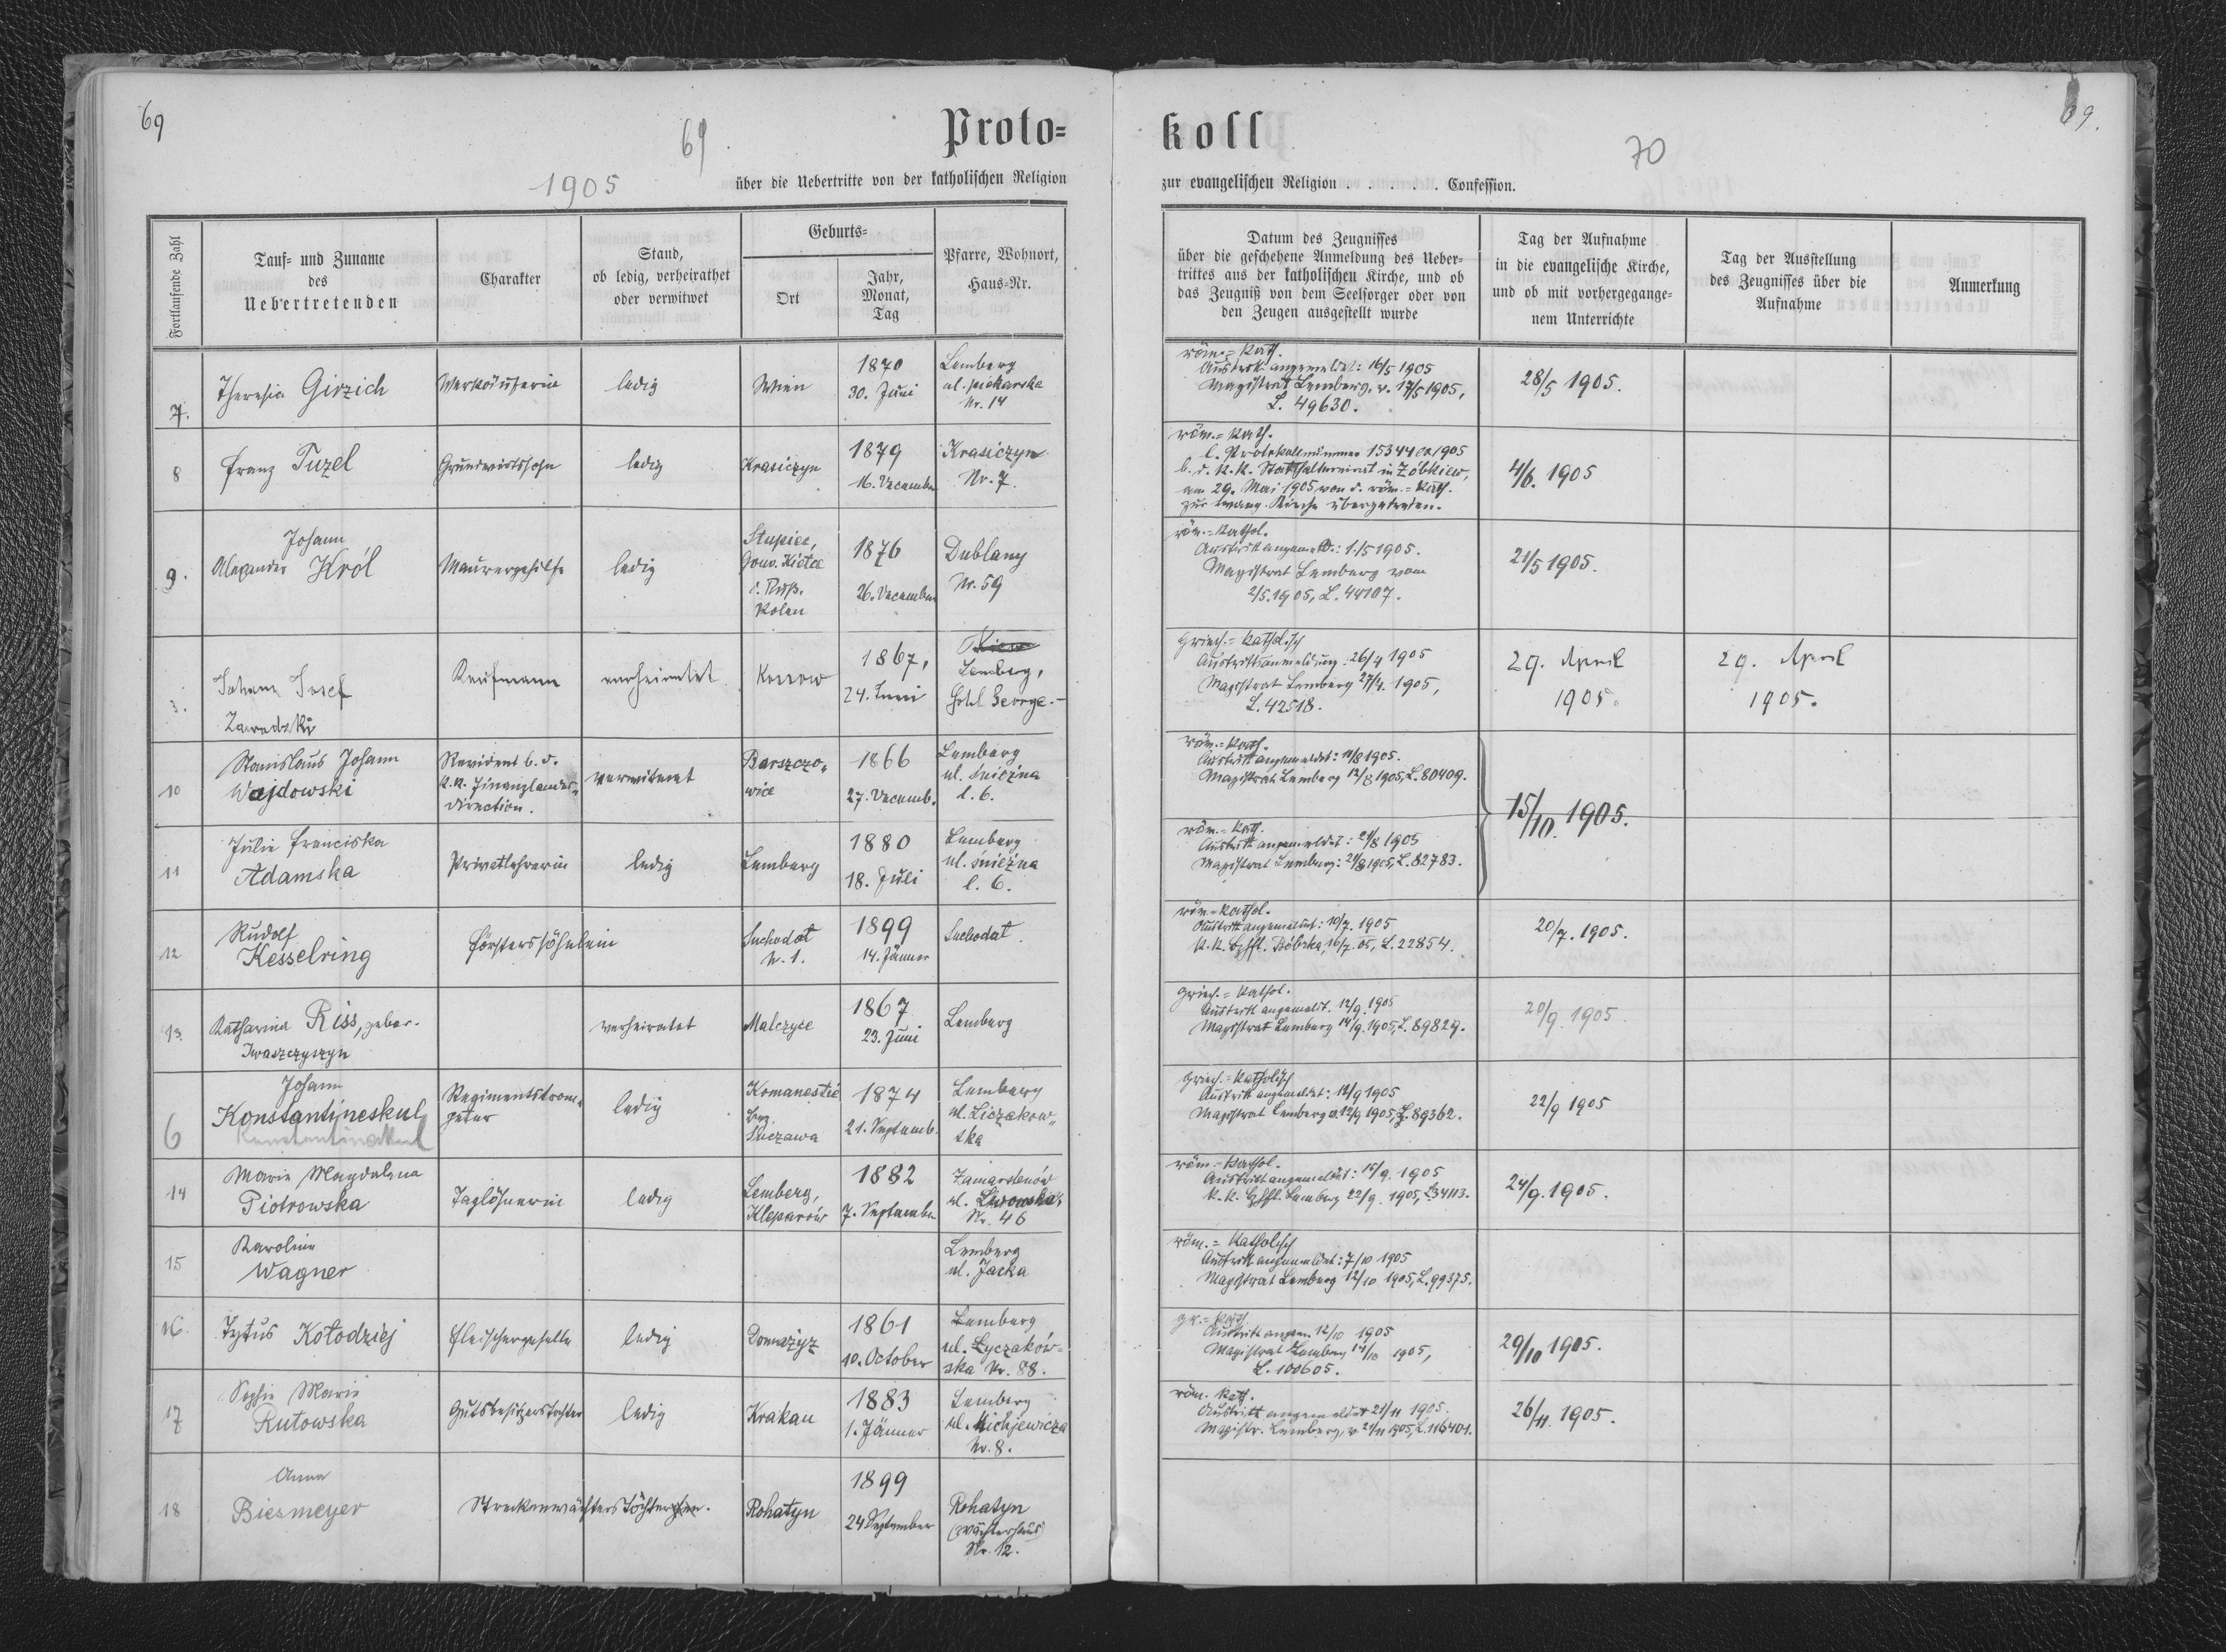 69
69
Proto=
1905
über die Uebertritte von der katholischen Religion
Fortlaufende Zahl
Tauf= und Zuname
des
Uebertretenden
Charakter
Stand,
ob ledig, verheirathet
oder verwitwet
Geburts=
Ort
Jahr,
Monat,
Tag
Pfarre, Wohnort,
Haus=Nr.
7.
Theresia Girzich
Verkäuferin
ledig
Wien
1870
30. Juni
Lemberg
ul. piekarska
Nr. 14
8
Franz Tuzel
Grundwirtssohn
ledig
Krasiczyn
1879
16. December
Krasiczyn
Nr. 7.
9.
Johann
Alexander Król
Maurergehilfe
ledig
Słupiec,
Gouv. Kielce
i. Russ.
Polen
1876
26. December
Dublany
Nr. 59
3.
Johann Josef
Zawadzki
Kaufmann
verheiratet
Kossow
1867,
24. Juni
Lemberg,
Hotel George.
10
Stanislaus Johann
Wajdowski
Revident b. d.
k.k. Finanzlandes=
direction.
verwitwet
Barszczo=
wice
1866
27. Decemb.
Lemberg
ul. śnieżna
l. 6.
11
Julie Franciska
Adamska
Privatlehrerin
ledig
Lemberg
1880
18. Juli
Lemberg
ul. śnieżna
l. 6.
12
Rudolf
Kesselring
Försterssöhnlein
Suchodoł
N. 1.
1899
14. Jänner
Suchodoł
13.
Katharina Riss, gebor.
Iwaszczyszyn
verheiratet
Malczyce
1867
23. Juni
Lemberg
6
Johann
Konstantineskul
Konstantinokul
Regimentstrom=
peter
ledig
Komanestie
Bez.
Suczawa
1874
21. Septemb.
Lemberg
ul. Liczakow=
ska
14
Marie Magdalena
Piotrowska
Taglöhnerin
ledig
Lemberg,
Kleparów
1882
7. September
Zamarstenów
ul. Lwowska
Nr. 46
15
Karoline
Wagner
Lemberg
ul. Jacka
16.
Tytus Kołodziej
Fleischergeselle
ledig
Domażyr
1861
10. October
Lemberg
ul. Łyczaków=
ska Nr. 88.
17
Sophie Marie
Rutowska
Gutsbesitzerstochter
ledig
Krakau
1883
1. Jänner
Lemberg
ul. Mickiewicza
Nr. 8.
18
Anna
Biesmeyer
Streckenwächters Töchterchen.
Rohatyn
1899
24 September
Rohatyn
(Wächterhaus)
Nr. 12.
69.
koll
70
zur evangelischen Religion . . . . . . Confession.
Datum des Zeugnisses
über die geschehene Anmeldung des Ueber=
trittes aus der katholischen Kirche, und ob
das Zeugniß von dem Seelsorger oder von
den Zeugen ausgestellt wurde
Tag der Aufnahme
in die evangelische Kirche,
und ob mit vorhergegange=
nem Unterrichte
Tag der Ausstellung
des Zeugnisses über die
Aufnahme
Anmerkung
röm.=kath.
Austritt angemeldet: 16/5 1905
Magistrat Lemberg, v. 17/5 1905,
L. 49630.
28/5 1905.
röm.=kath.
l. Protokollnummer 15344 ex 1905
b. d. k.k. Statthaltereirat in Żółkiew,
am 29. Mai 1905 von d. röm.=kath.
zur evang. Kirche übergetreten.
4/6. 1905
röm.=kathol.
Austritt angemeld.: 1./5 1905.
Magistrat Lemberg vom
2/5.1905, L. 44107.
21/5 1905.
Griech.=katholisch
Austrittsanmeldung: 26/4 1905
Magistrat Lemberg 27/4. 1905,
L. 42518.
29. April
1905.
29. April
1905.
röm.=kath.
Austritt angemeldet: 11/8 1905.
Magistrat Lemberg 12/8 1905, L. 80409.
15/10. 1905.
röm.=kath.
Austritt angemeldet: 21/8 1905
Magistrat Lemberg: 21/8 1905, L. 82783.
röm.=kathol.
Austritt angemeldet: 10/7. 1905
k.k. Bzhft. Bóbrka, 16/7. 05, L. 22854.
20/7. 1905.
Griech.=kathol.
Austritt angemeldt. 12/9. 1905
Magistrat Lemberg 14/9. 1905, L. 89829.
20/9. 1905.
Griech.=katholisch
Austritt angemeldet: 12/9 1905
Magistrat Lemberg v. 12/9 1905, L. 89362.
22/9 1905
röm.=kathol.
Austritt angemeldet: 15/9. 1905
k.k. Bzhft. Lemberg 22/9. 1905, L. 34113.
24/9. 1905.
röm.=katholisch
Austritt angemeldet: 7/10 1905
Magistrat Lemberg 12/10 1905, L. 99375.
gr.=kath
Austritt angem. 12/10 1905
Magistrat Lemberg 14/10 1905,
L. 100605.
29/10 1905.
röm. kath.
Austritt angemeldet 21/11 1905.
Magistr. Lemberg, v. 21/11 1905, L. 116401.
26/11. 1905.